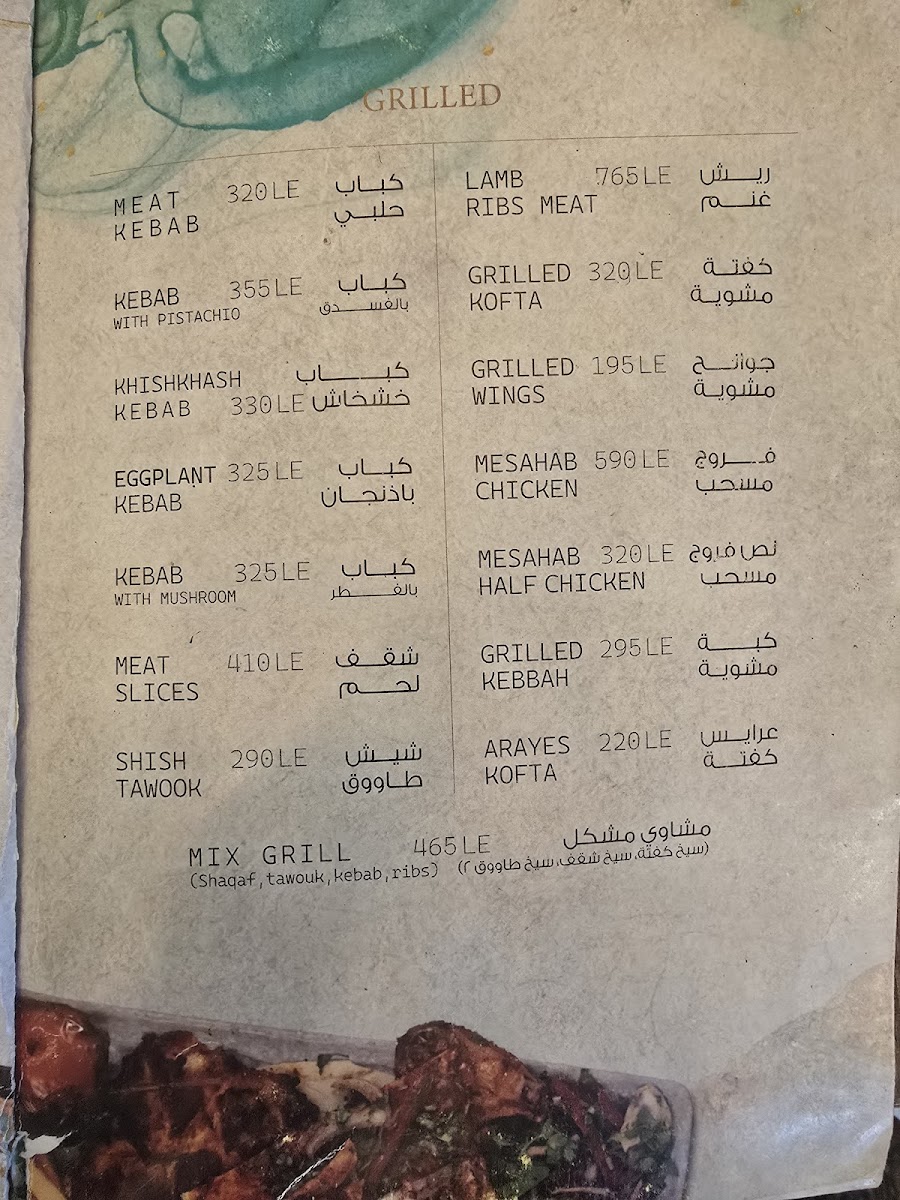 GRILLED
MEAT 320LE كباب
KEBAB حلبي
KEBAB 355LE كباب
WITH PISTACHIO بالفسدق
KHISHKHASH كباب
KEBAB 330LE خشخاش
EGGPLANT 325LE كباب
KEBAB باذنجان
KEBAB 325LE كباب
WITH MUSHROOM بالفطر
MEAT 410LE شقف
SLICES لحم
SHISH 290LE شيش
TAWOOK طاووق
LAMB 765LE ريش
RIBS MEAT غنم
GRILLED 320LE كفتة
KOFTA مشوية
GRILLED 195LE جوانح
WINGS مشوية
MESAHAB 590LE فروج
CHICKEN مسحب
MESAHAB 320LE نص فروج
HALF CHICKEN مسحب
GRILLED 295LE كبة
KEBBAH مشوية
ARAYES 220LE عرايس
KOFTA كفتة
MIX GRILL 465LE مشاوي مشكل
(Shaqaf,tawouk,kebab,ribs) (سيخ كفتة، سيخ شقف، سيخ طاووق ٢)